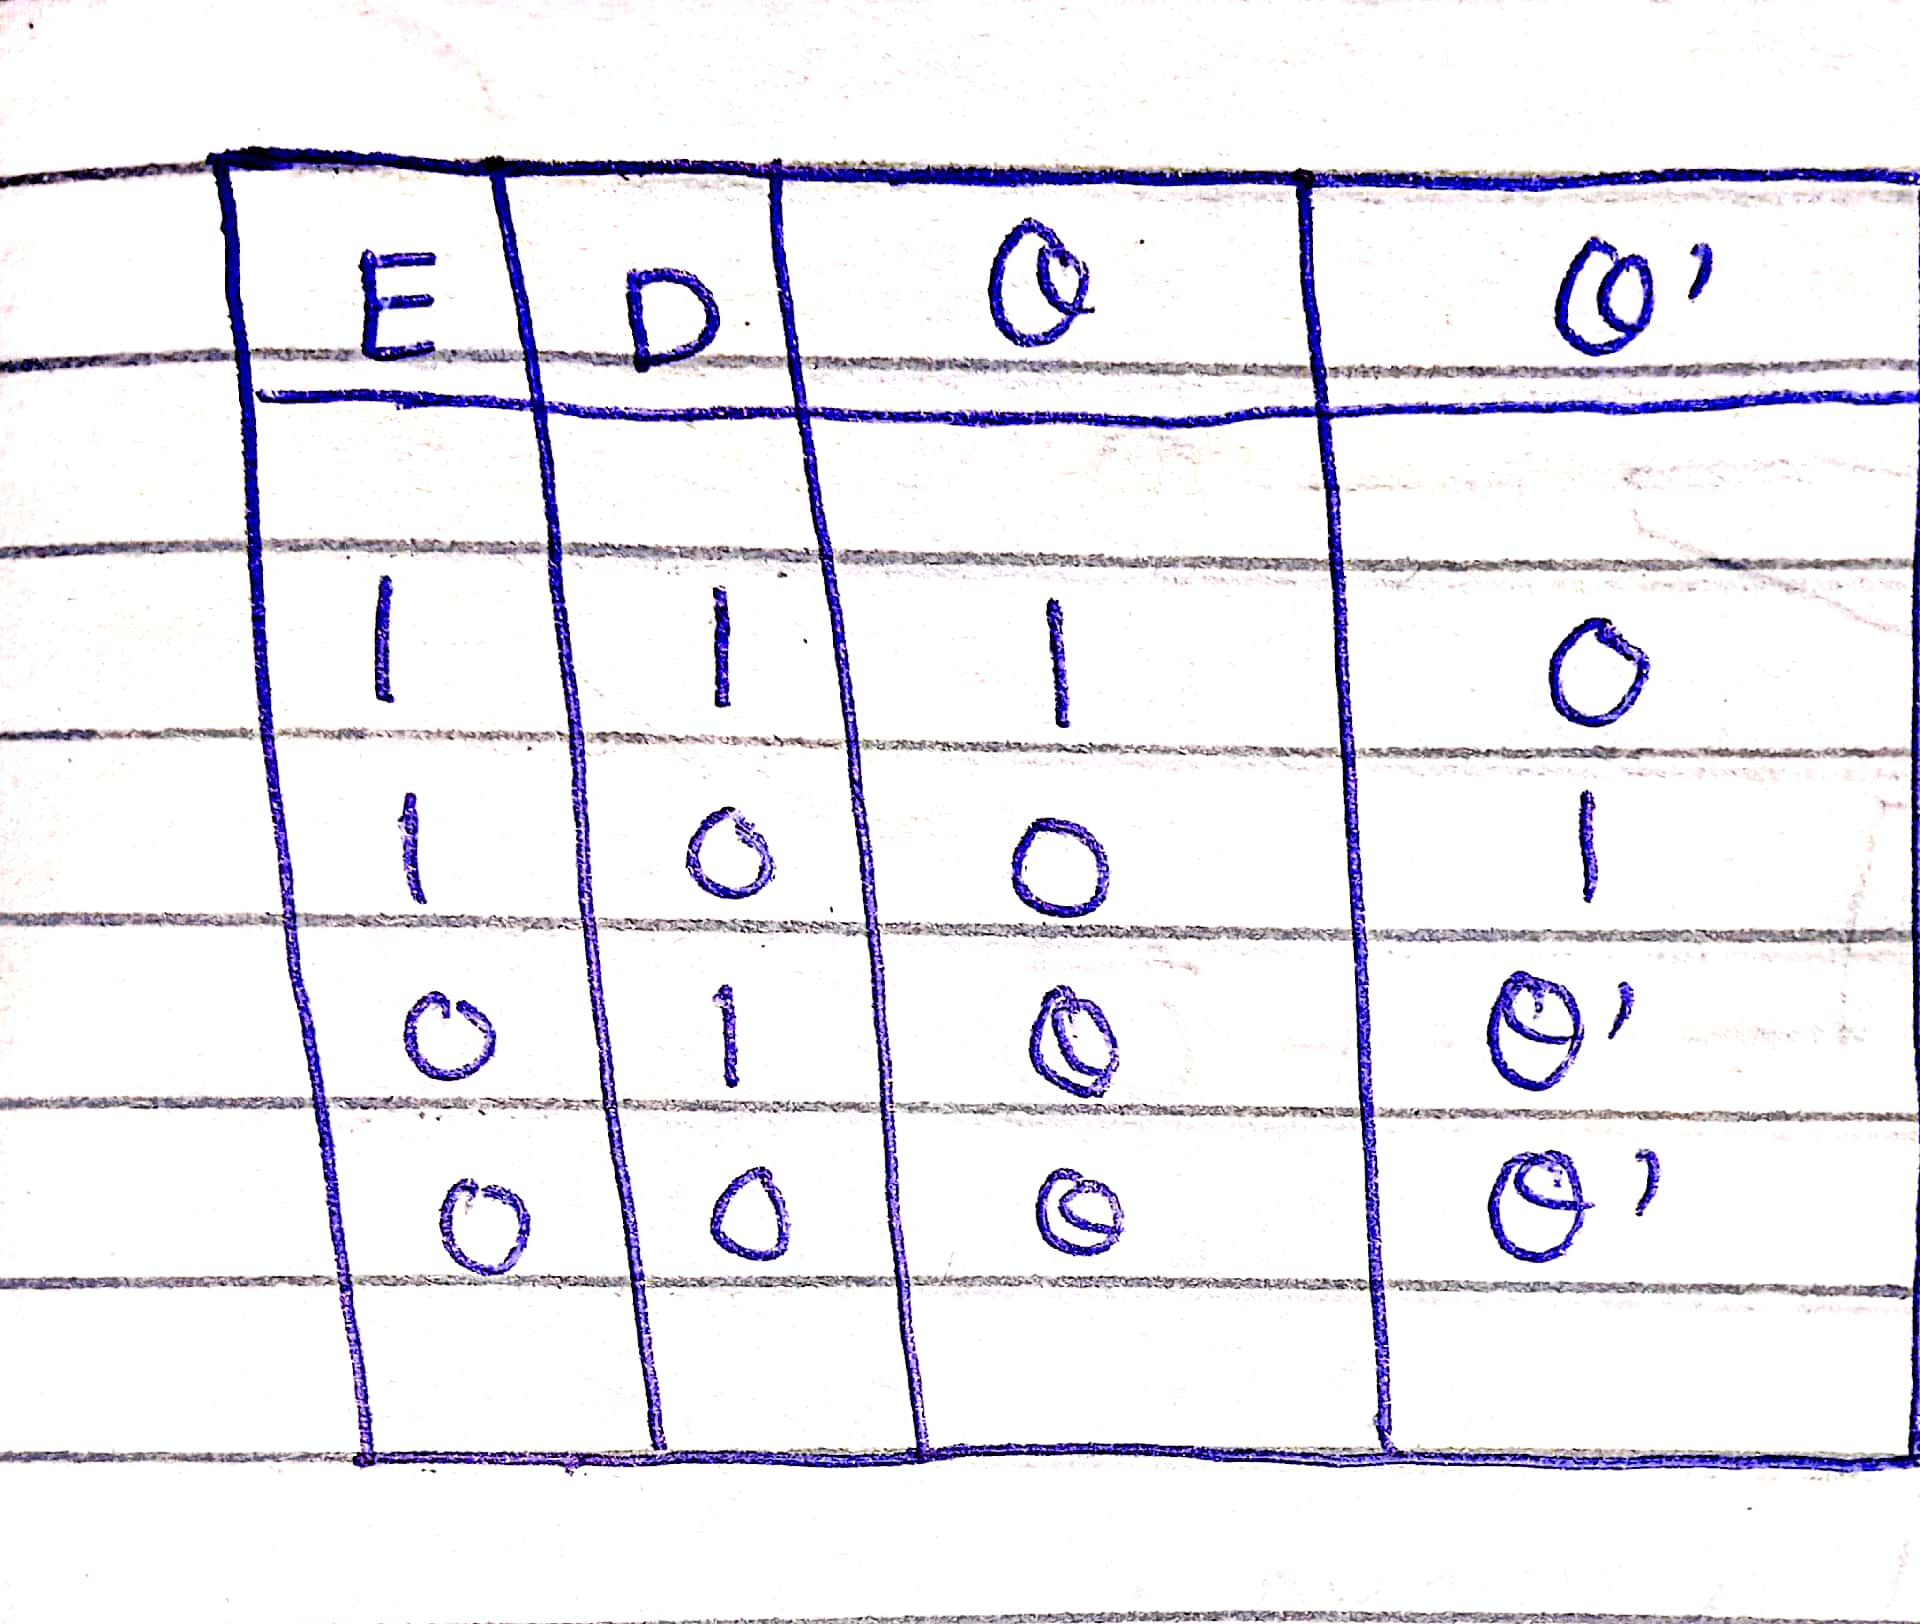 E D Q Q'
1 1 1 0
1 0 0 1
0 1 Q Q'
0 0 Q Q'